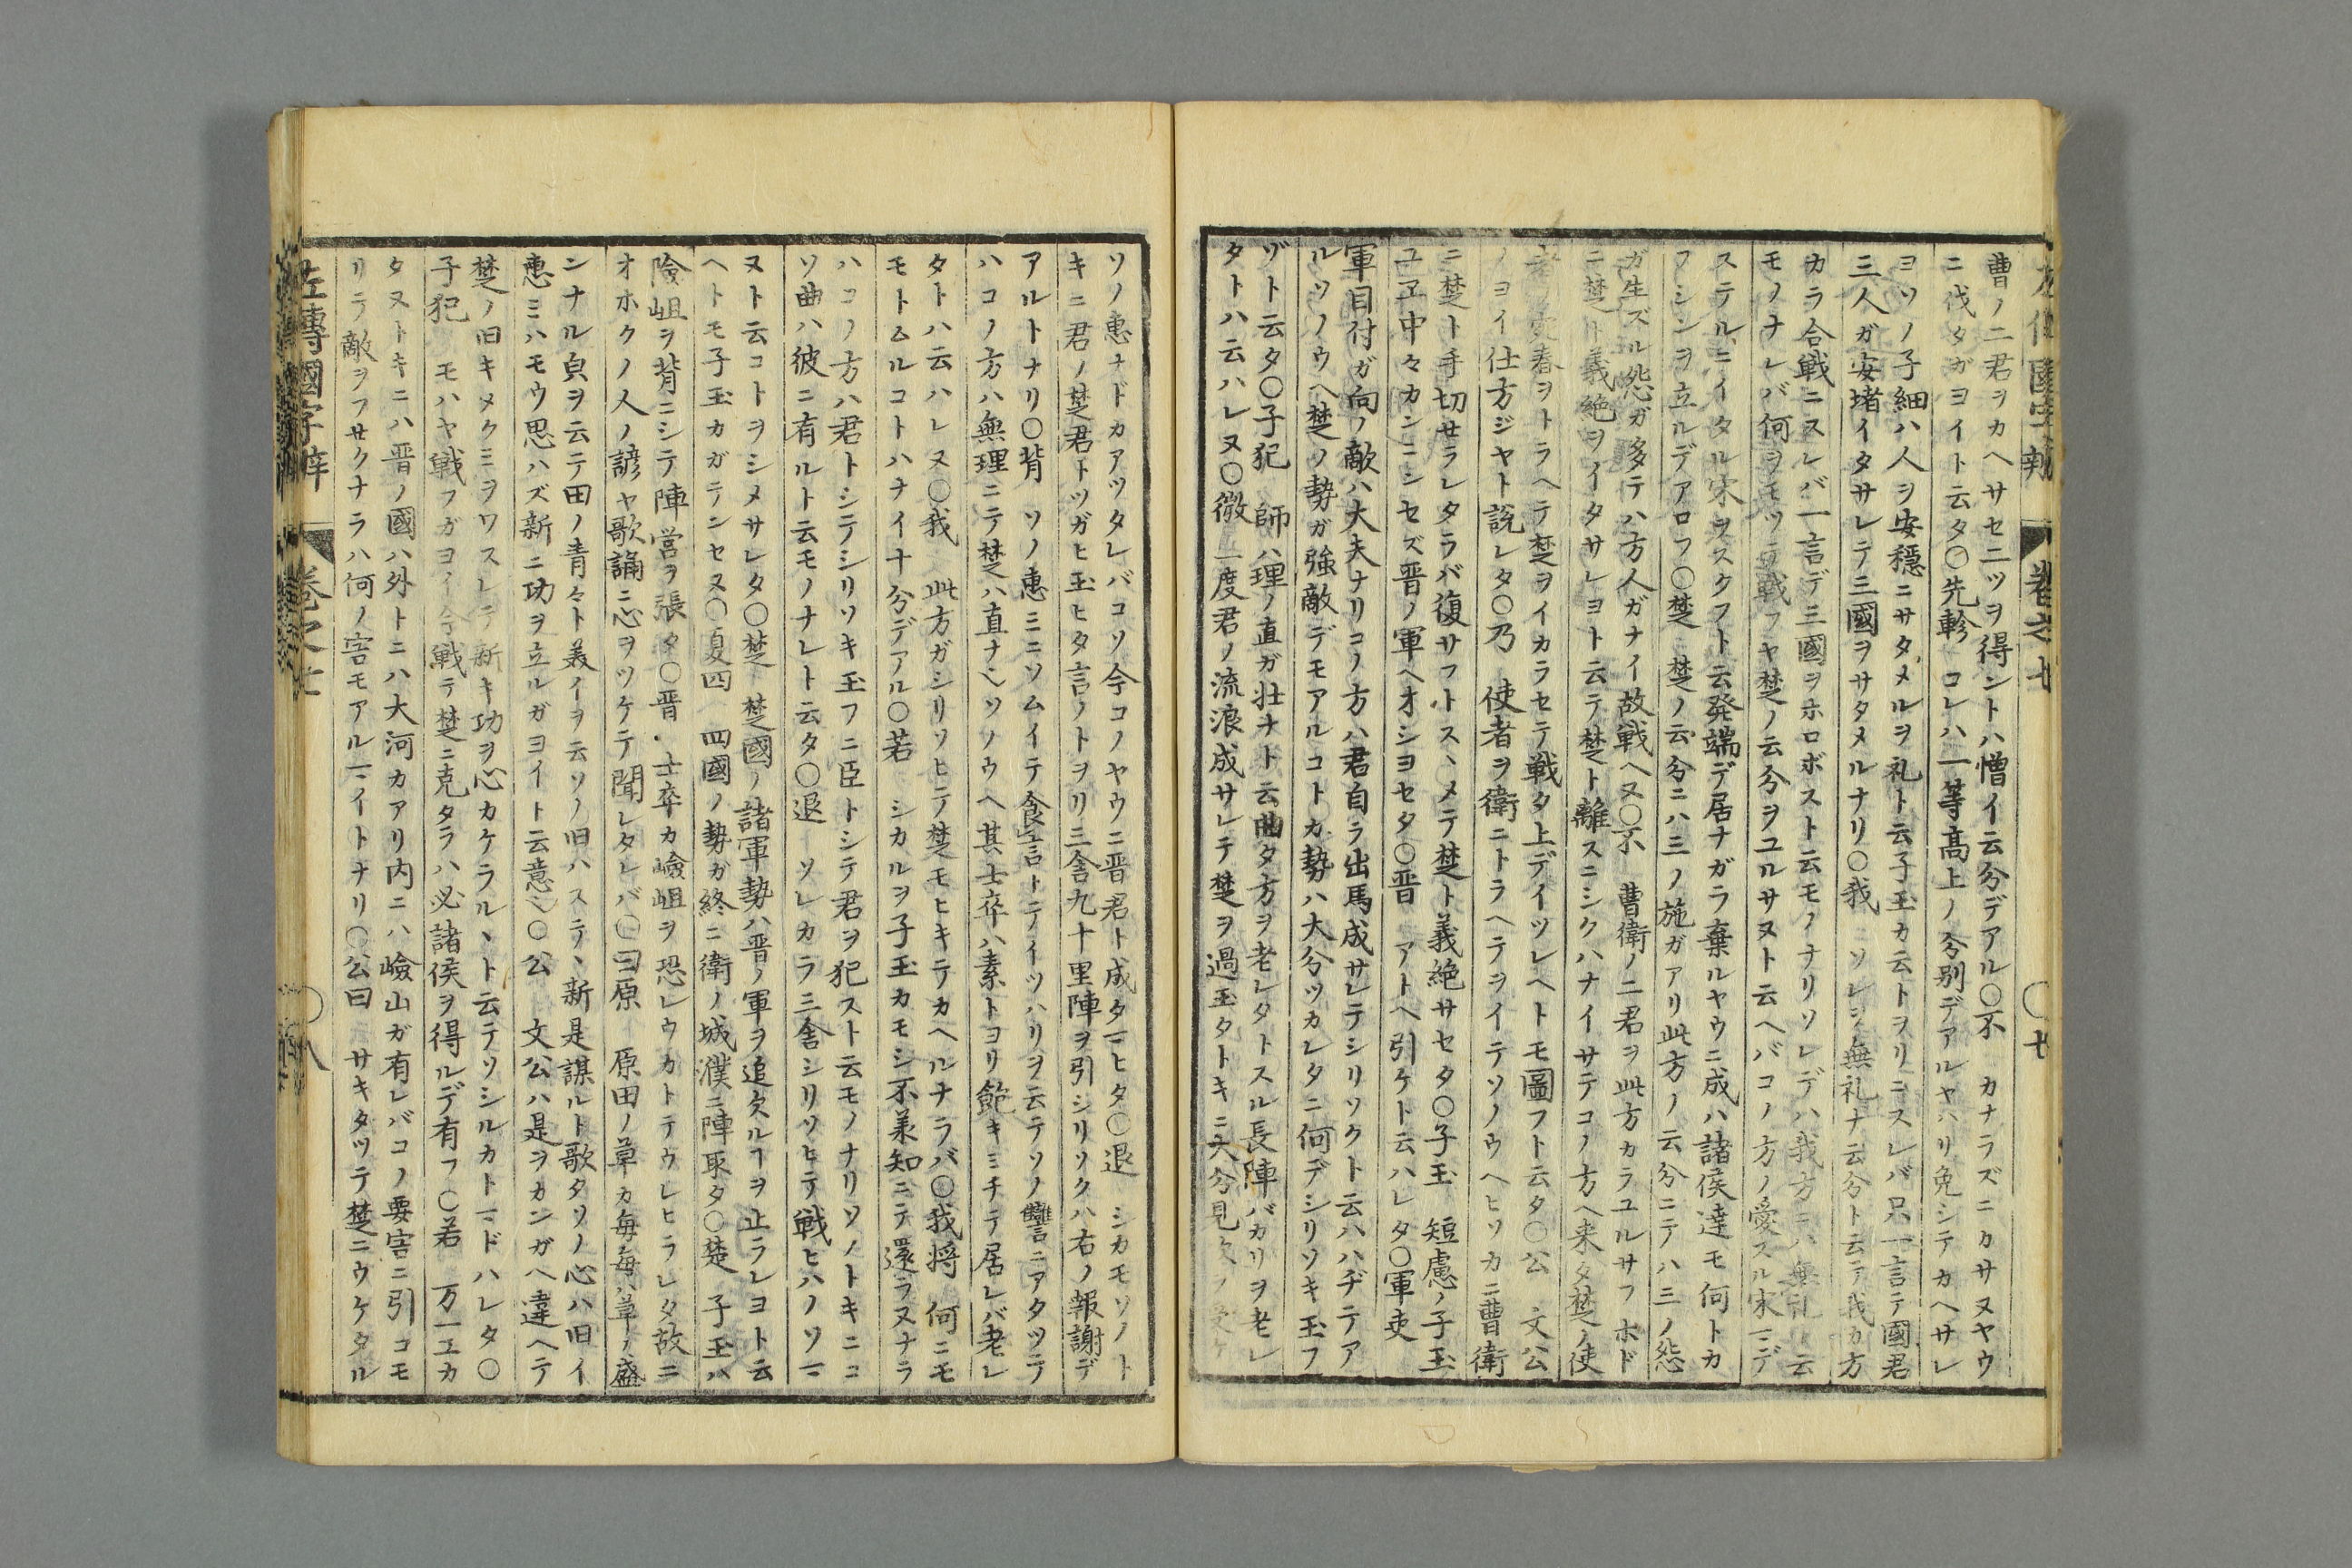 左傳國字辯 卷之七 ○七
曹ノ二君ヲカヘサセ二ツヲ得ントハ憎イ云分デアル○不 カナラズニカサヌヤウ
ニ伐タガヨイト云タ○先軫 コレハ一等高上ノ分別デアルヤハリ免シテカヘサレ
ヨソノ子細ハ人ヲ安穏ニサタメルヲ礼ト云子玉カ云トヲリニスレバ只一言テ國君
三人ガ安堵イタサレテ三國ヲサタメルナリ○我 ソレヲ無礼ナ云分ト云テ我カ方
カラ合戦ニスレバ一言デ三國ヲホロボスト云モノナリソレデハ我方ニハ無礼ト云
モノナレバ何ヲモツテ戦フヤ楚ノ云分ヲユルサヌト云ヘバコノ方ノ愛スル宋ヿデ
ステルニイタル宋ヲスクフト云発端デ居ナガラ棄ルヤウニ成ハ諸侯達モ何トカ
フシンヲ立ルデアロフ○楚 楚ノ云分ニハ三ノ施ガアリ此方ノ云分ニテハ三ノ怨
ガ生ズル怨ガ多テハ方人ガナイ故戦ヘヌ○不 曹衛ノ二君ヲ此方カラユルサフホド
ニ楚ト義絶ヲイタサレヨト云テ楚ト離スニシクハナイサテコノ方ヘ来タ楚ノ使
者ノ宛春ヲトラヘテ楚ヲイカラセテ戦タ上デイツレヘトモ圖フト云タ○公 文公
ノヨイ仕方ジヤト説レタ○乃 使者ヲ衛ニトラヘテヲイテソノウヘヒソカニ曹衛
ニ楚ト手切セラレタラバ復サフトスヽメテ楚ト義絶サセタ○子玉 短慮ノ子玉
ユヱ中々カンニンセズ晋ノ軍ヘオシヨセタ○晋 アトヘ引ケト云ハレタ○軍吏
軍目付ガ向ノ敵ハ大夫ナリコノ方ハ君自ラ出馬成サレテシリソクト云ハハヂテア
ルソノウヘ楚ノ勢ガ強敵デモアルコトカ勢ハ大分ツカレタニ何デシリソキ玉フ
ゾト云タ○子犯 師ハ理ノ直ガ壮ナト云曲タ方ヲ老レタトスル長陣バカリヲ老レ
タトハ云ハレヌ○微 一度君ノ流浪成サレテ楚ヲ過玉タトキニ大分見次ヲ受ケ
ソノ惠ナドカアツタレバコソ今コノヤウニ晋君ト成タヿヒタ○退 シカモソノト
キニ君ノ楚君トツガヒ玉ヒタ言ノトヲリ三舎九十里陣ヲ引シリソクハ右ノ報謝デ
アルトナリ○背 ソノ惠ミニソムイテ食言トテイツハリヲ云テソノ讐ニアタツテ
ハコノ方ハ無理ニテ楚ハ直ナヘソノウヘ其士卒ハ素トヨリ飽キミチテ居レバ老レ
タトハ云ハレヌ○我 此方ガシリソヒテ楚モヒキテカヘルナラバ○我将 何ニモ
モトムルコトハナイ十分デアル○若 シカルヲ子玉カモシ不羕知ニテ還ラヌナラ
ハコノ方ハ君トシテシリソキ玉フニ臣トシテ君ヲ犯スト云モノナリソノトキニコ
ソ曲ハ彼ニ有ルト云モノナレト云タ○退 ソレカラ三舎シリソヒテ戦ヒハノソマ
ヌト云コトヲシメサレタ○楚 楚國ノ諸軍勢ハ晋ノ軍ヲ追欠ルヿヲ止ラレヨト云
ヘトモ子玉カガテンセヌ○夏四 四國ノ勢ガ終ニ衛ノ城濮ニ陣取タ○楚 子玉ハ
險岨ヲ背ニシテ陣営ヲ張タ○晋 士卒カ嶮岨ヲ恐レウカトテウレヒラレタ故ニ
オホクノ人ノ諺ヤ歌誦ニ心ヲツケテ聞レタレバ○曰原 原田ノ草カ毎毎ハ草ノ盛
ンナル皃ヲ云テ田ノ青々ト美イヲ云ソノ旧ハステヽ新是謀ルト歌タソノ心ハ旧イ
惠ミハモウ思ハズ新ニ功ヲ立ルガヨイト云意ヘ○公 文公ハ是ヲカンガヘ違ヘテ
楚ノ旧キメクミヲワスレテ新キ功ヲ心カケラルヽト云テソシルカトヿドハレタ○
子犯 モハヤ戦フガヨイ今戦テ楚ニ克タラハ必諸侯ヲ得ルデ有フ○若 万一エカ
タヌトキニハ晋ノ國ハ外トニハ大河カアリ内ニハ嶮山ガ有レバコノ要害ニ引コモ
リテ敵ヲフサクナラハ何ノ害モアルヿイトナリ○公曰 サキタツテ楚ニウケタル
左傳國字辯 卷之七 ○八